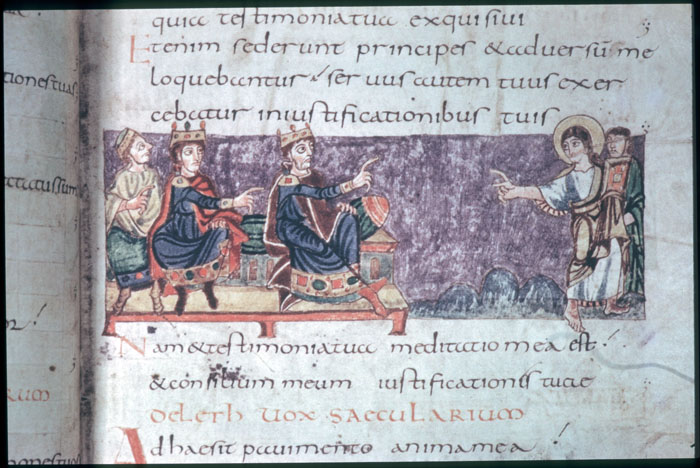 quia testimonia tua exquisivi
Etenim sederunt principes & adversũ me
loquebantur servus autem tuus exer
cebatur in iustificationibus tuis
Nam & testimonia tua meditatio mea est
& consilium meum iustificationis tuae
deleth vox saecularium
Adhaesit pavimento anima mea